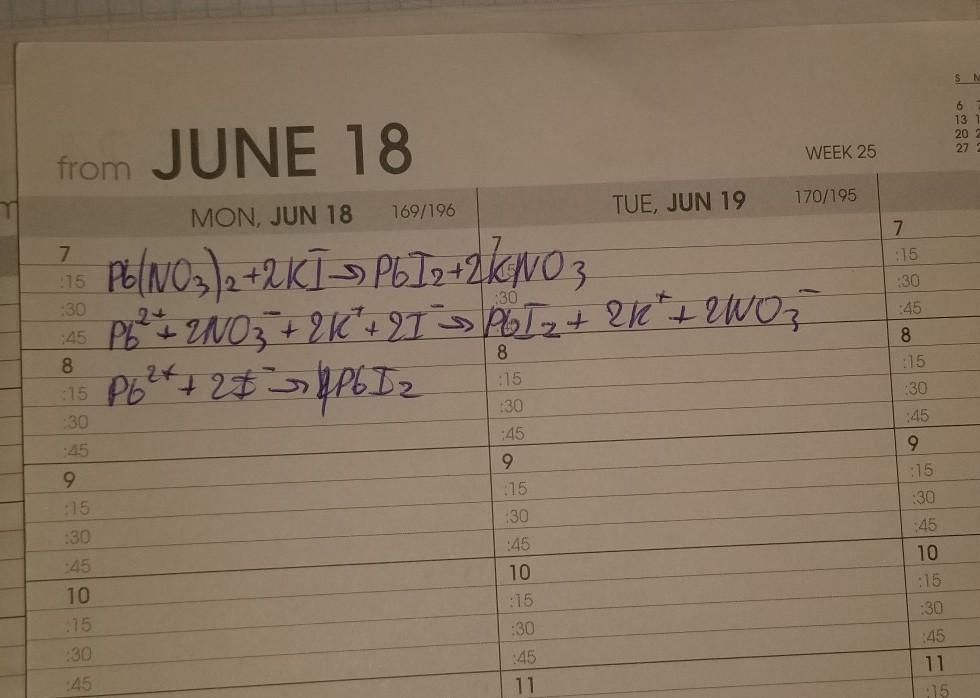 S M
6 7
13 1
20 2
27 2
from JUNE 18
WEEK 25
MON, JUN 18 169/196
TUE, JUN 19 170/195
7
:15
:30
:45
8
:15
:30
:45
9
:15
:30
:45
10
:15
:30
:45
Pb(NO₃)₂+2KI→PbI₂+2KNO₃
Pb²⁺+2NO₃⁻+2K⁺+2I⁻→PbI₂+2K⁺+2NO₃⁻
Pb²⁺+2I⁻→PbI₂
7
:30
8
:15
:30
:45
9
:15
:30
:45
10
:15
:30
:45
11
7
:15
:30
:45
8
:15
:30
:45
9
:15
:30
:45
10
:15
:30
:45
11
:15